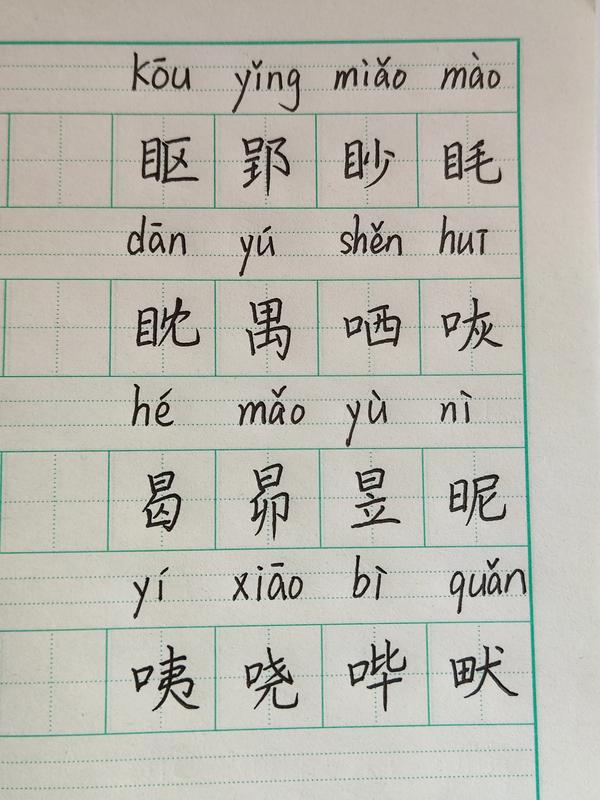 kōu yǐng miǎo mào
眍 郢 眇 眊
dān yú shěn huī
眈 禺 哂 咴
hé mǎo yù nì
曷 昴 昱 昵
yí xiāo bì quǎn
咦 哓 哔 畎